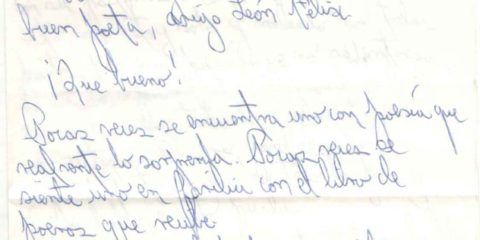 buen poeta, amigo León Felix.
¡Que bueno!
Pocas veces se encuentra uno con poesía que
realmente lo sorprenda. Pocas veces se
siente uno en familia con el libro de
poemas que recibe.